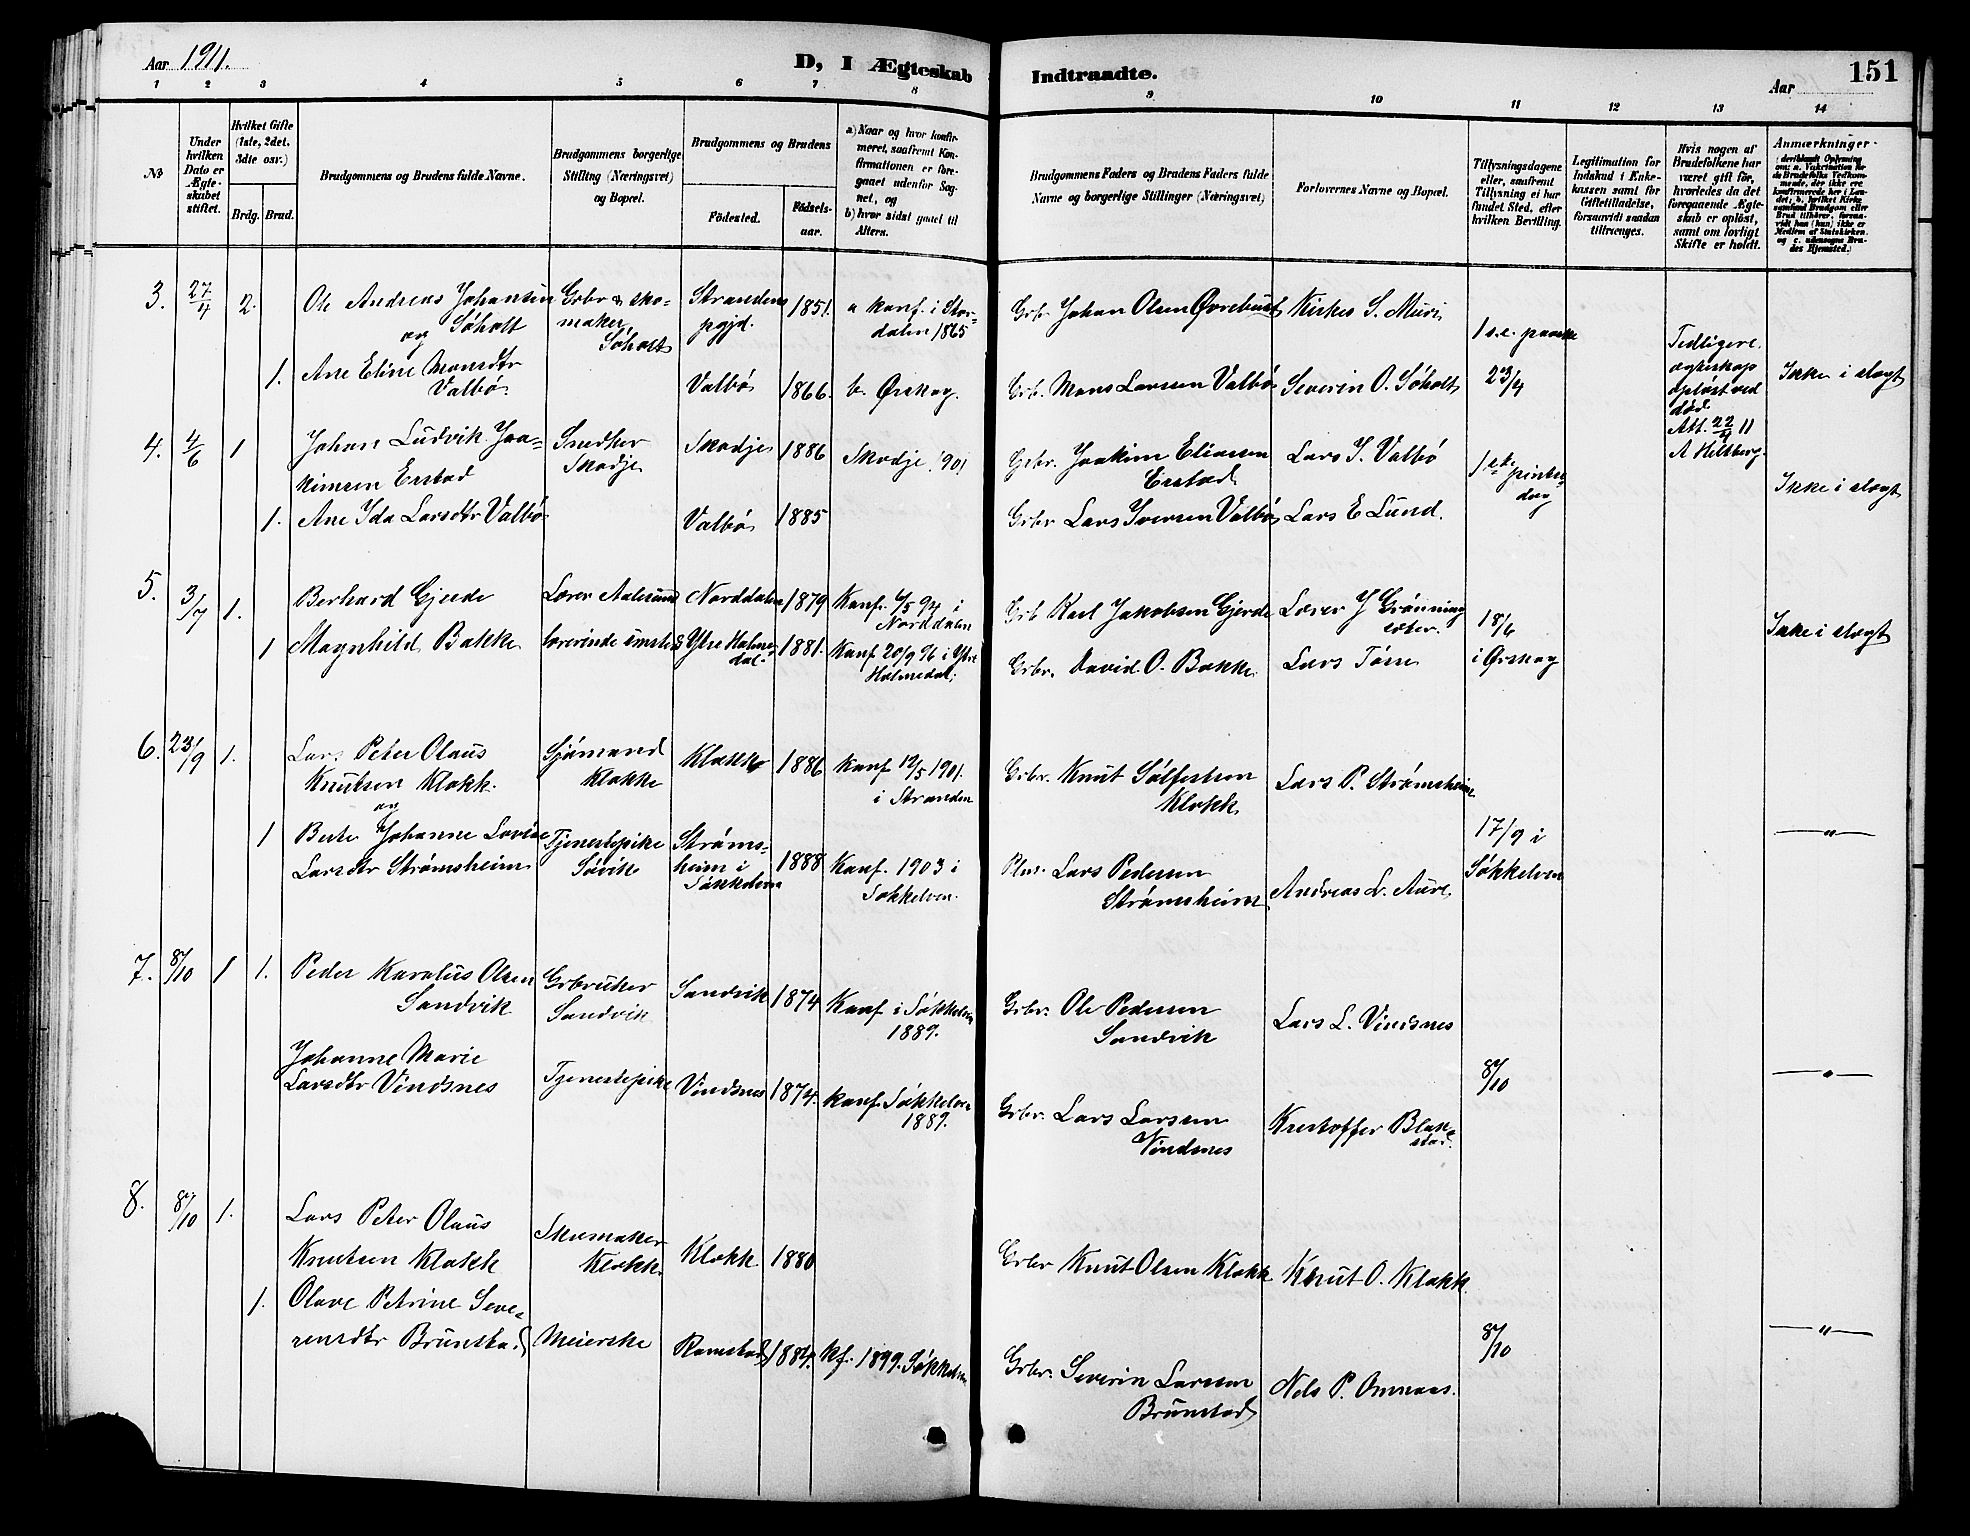 Aar 1911.
D, I Ægteskab
Indtraadte.
Aar
151
1 2 3 4 5 6 7 8 9 10 11 12 13 14
№
Under hvilken Dato er Ægteskabet stiftet.
Hvilket Gifte (1ste, 2det, 3dte osv.)
Brdg. Brud.
Brudgommens og Brudens fulde Navne.
Brudgommens borgerlige Stilling (Næringsvei) og Bopæl.
Brudgommens og Brudens
Fødested.
Fødselsaar.
a) Naar og hvor konfirmeret, saafremt Konfirmationen er foregaaet udenfor Sognet, og
b) hvor sidst gaaet til Alters.
Brudgommens Faders og Brudens Faders fulde Navne og borgerlige Stillinger (Næringsvei)
Forlovernes Navne og Bopæl.
Tillysningsdagene eller, saafremt Tillysning ei har fundet Sted, efter hvilken Bevilling.
Legitimation for Indskud i Enkekassen samt for Giftetilladelse, forsaavidt saadan tiltrænges.
Hvis nogen af Brudefolkene har været gift før, hvorledes da det foregaaende Ægteskab er opløst, samt om lovligt Skifte er holdt.
Anmærkninger
3. 27/4 2. Ole Andreas Johansen
og Søholt
Grbr & skomaker
Søholt
Strandens
pgjd.
1851.
a konf. i Stordalen 1865
Grbr. Johan Olsen Øvrebust
Kirkes. S. Muri
1 s.e. paaske
23/4
Tidligere
ægteskap
opløst ved
død.
Att. 22/4 11
1. Ane Eline Monsdtr
Valbø.
Valbø
1866.
b. Ørskog.
Grbr. Mons Larssen Valbø
Severin O. Søholt
Ikke i slægt
4. 4/6 1 Johan Ludvik Joakimsen Erstad
Snedker
Skodje
Skodje
1886
Skodje 1901
Grbr. Joakim Eliassen
Erstad
Lars I. Valbø
1ste pintsedag
1. Ane Ida Larsdtr Valbø
Valbø
1885
Grbr Lars Iversen Valbø
Lars E Lund.
Ikke i slægt
5. 3/7 1. Berhard Gjerde
Lærer Aalesund
Norddalen
1879
Konf. 4/5 94 i
Norddalen
Grb Karl Jakobsen Gjerde
Lærer J Grønningsæter.
18/6
i Ørskog
1 Magnhild Bakke
Lærerinde
Ytre Holmedal.
1881.
Konf 20/9 96 i Ytre
Holmedal.
Grbr. David. O. Bakke.
Lars Tørre
Ikke i slægt
6. 23/9 1. Lars Peter Olaus
Knutsen Klokk.
og
Sjømand
Klokke
Klokk
1886
Konf 12/5 1901.
i Stranden
Grbr. Knut Sølfestsen
Klokk
Lars P. Strømsheim
17/9 i
Søkkelven
1 Berte Johanne Lovise
Larsdtr Strømsheim
Tjenestepike
Søvik
Strømsheim i
Søkkelven
1888
Konf. 1903 i
Søkkelven.
Plms. Lars Pedersen
Strømsheim
Andreas L. Aure.
— " —
7. 8/10 1 1. Peder Karolus Olsen
Sandvik
Grbruker
Sandvik
Sandvik
1874
Konf i Søkkelven
1889.
Grbr. Ole Pedersen
Sandvik
Lars L. Vindsnes
Johanne Marie
Larsdtr Vindsnes
Tjenestepike
Vindsnes
1874.
konf. Søkkelven
1889.
Grbr. Lars Larssen
Vindsnes
Kristoffer Blakstad.
8/10
— " —
8. 8/10 1. Lars Peter Olaus
Knutsen Klokk
Skomaker
Klokk.
Klokk
1880
Grbr Knut Olsen Klokk
Knut O. Klokk.
1. Olave Petrine Severensdtr Brunstad
Meierske
Ramstad
1884.
kf. 1899. Søkkelven
Grbr. Severin Larssen
Brunstad
Nils P. Ommaas.
8/10
— " —